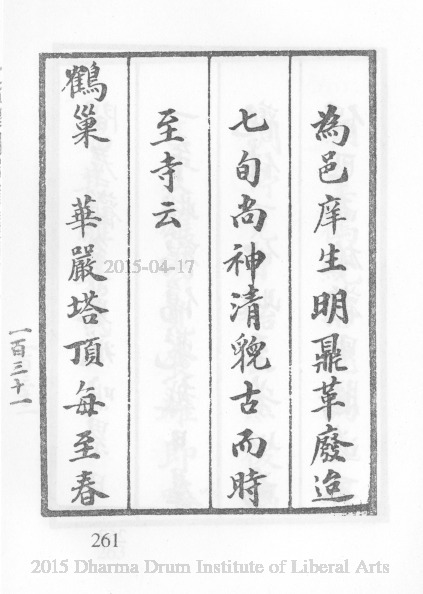 為邑庠生明鼎革廢迨
七旬尚神清貌古而時
至寺云
鶴巢　華嚴塔頂每至春
一百三十一
261
2015-04-17
2015 Dharma Drum Institute of Liberal Arts